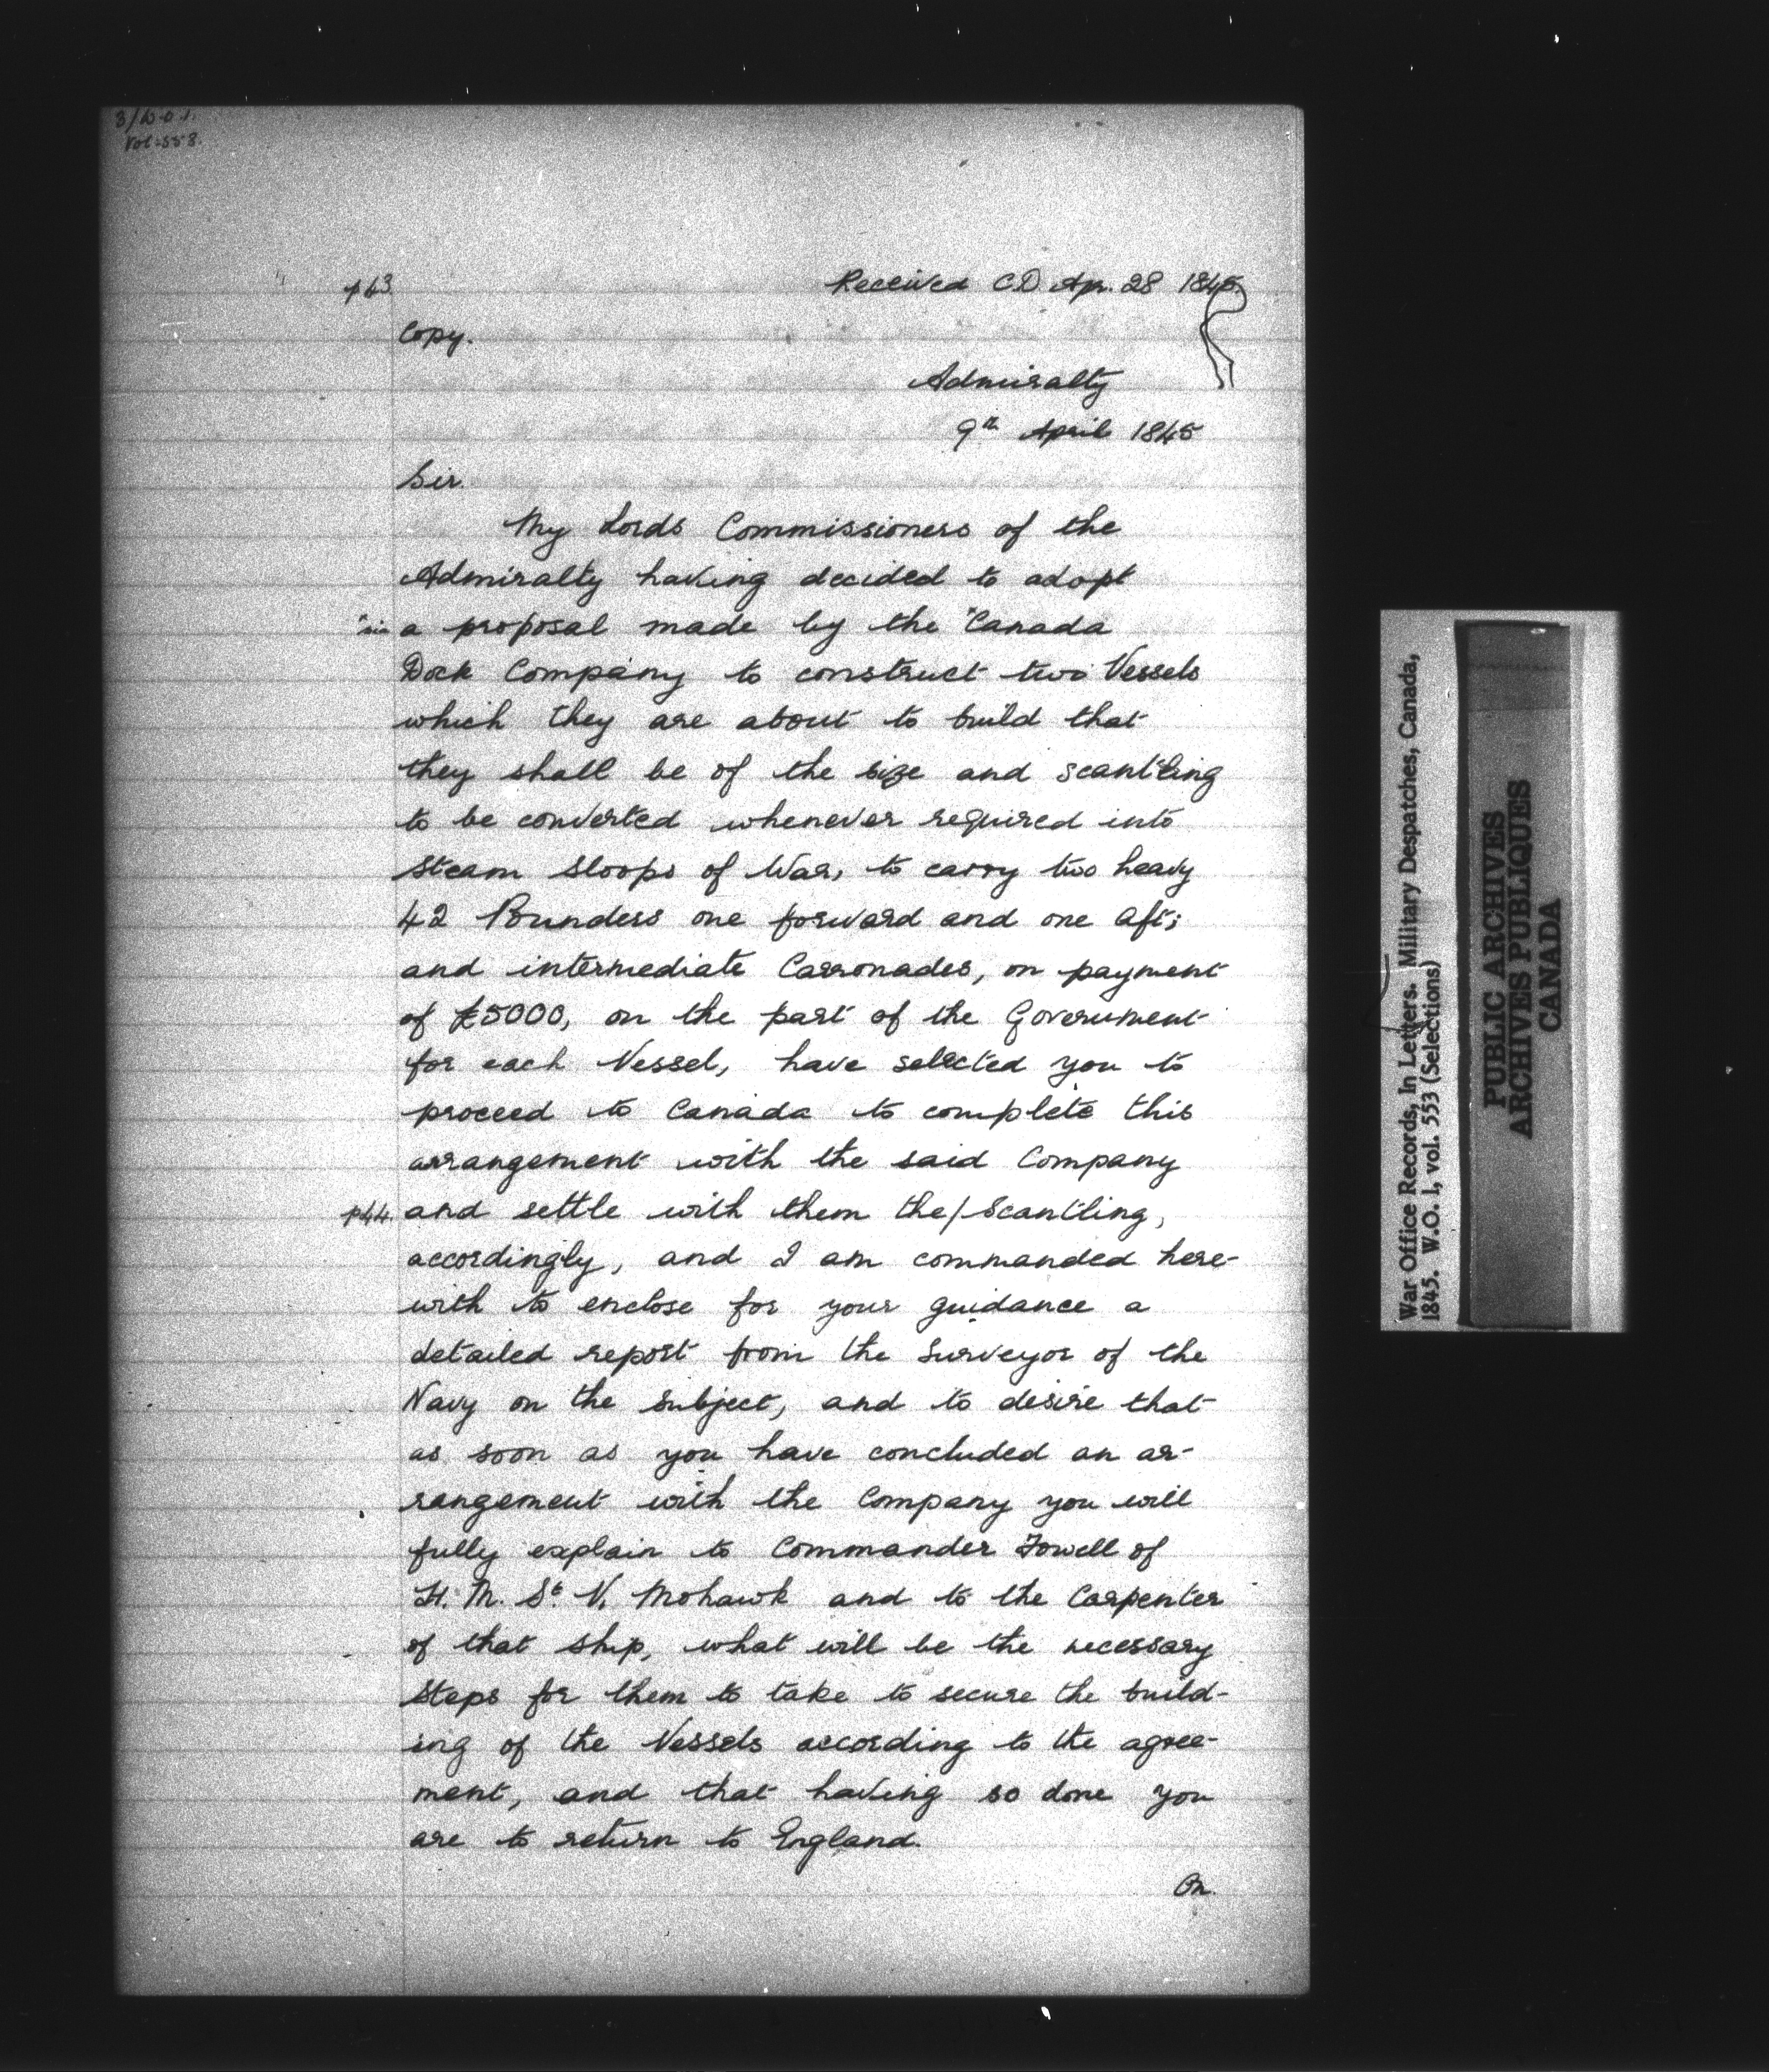 3/W.O.1.
Vol. 553.
p43. Received CD Apr. 28 1845.
Copy.
Admiralty
9th April 1845
Sir.
My Lords Commissioners of the
Admiralty having decided to adopt
a proposal made by the "Canada
Dock Company to construct two Vessels
which they are about to build that
they shall be of the size and scantling
to be converted whenever required into
Steam Sloops of War, to carry two heavy
42 Pounders one forward and one aft;
and intermediate Carronades, on payment
of £5000, on the part of the Government
for each Vessel, have selected you to
proceed to Canada to complete this
arrangement with the said Company
p44. and settle with them the/Scantling,
accordingly, and I am commanded here-
with to enclose for your guidance a
detailed report from the Surveyor of the
Navy on the subject, and to desire that
as soon as you have concluded an ar-
rangement with the Company you will
fully explain to Commander Fowell of
H. M. St. V. Mohawk and to the Carpenter
of that ship, what will be the necessary
Steps for them to take to secure the build-
ing of the Vessels according to the agree-
ment, and that having so done you
are to return to England.
On.
War Office Records, In Letters. Military Despatches, Canada,
1845. W.O. 1, vol. 553 (Selections)
PUBLIC ARCHIVES
ARCHIVES PUBLIQUES
CANADA